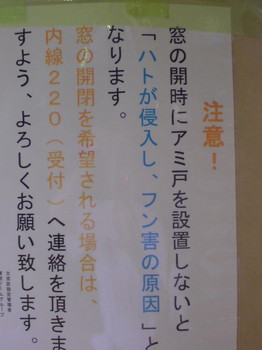 注意！
窓の開時にアミ戸を設置しないと
「ハトが侵入し、フン害の原因」と
なります。
窓の開閉を希望される場合は、
内線220（受付）へ連絡を頂きま
すよう、よろしくお願い致します。